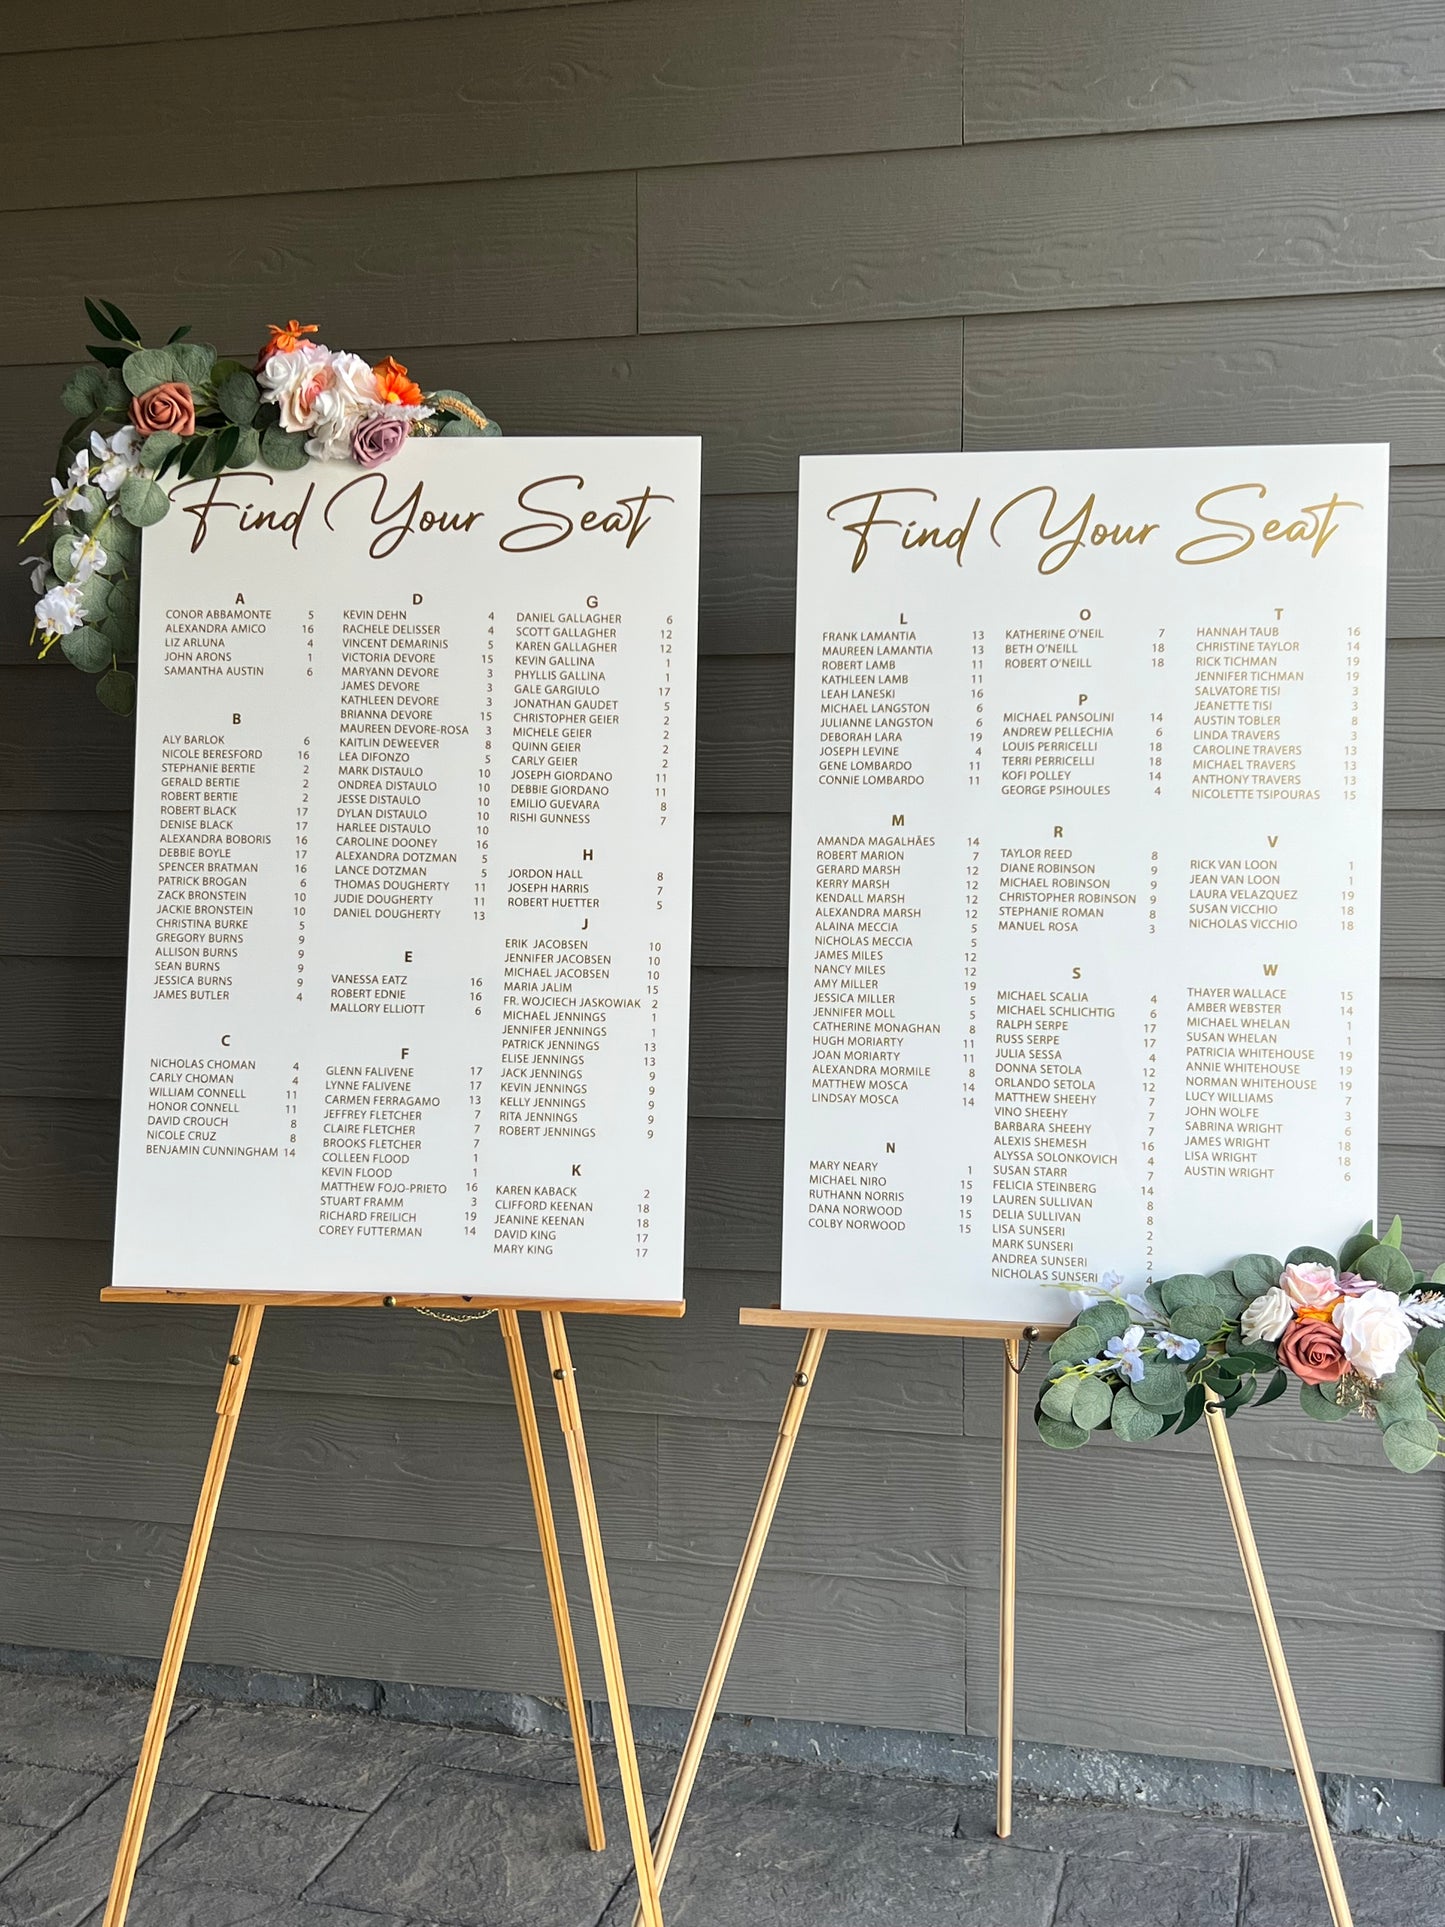 Find Your Seat
A
CONOR ABBAMONTE 5
ALEXANDRA AMICO 16
LIZ ARLUNA 4
JOHN ARONS 1
SAMANTHA AUSTIN 6
B
ALY BARLOK 6
NICOLE BERESFORD 16
STEPHANIE BERTIE 2
GERALD BERTIE 2
ROBERT BERTIE 2
ROBERT BLACK 17
DENISE BLACK 17
ALEXANDRA BOBORIS 16
DEBBIE BOYLE 17
SPENCER BRATMAN 16
PATRICK BROGAN 6
ZACK BRONSTEIN 10
JACKIE BRONSTEIN 10
CHRISTINA BURKE 5
GREGORY BURNS 9
ALLISON BURNS 9
SEAN BURNS 9
JESSICA BURNS 9
JAMES BUTLER 4
C
NICHOLAS CHOMAN 4
CARLY CHOMAN 4
WILLIAM CONNELL 11
HONOR CONNELL 11
DAVID CROUCH 8
NICOLE CRUZ 8
BENJAMIN CUNNINGHAM 14
D
KEVIN DEHN 4
RACHELE DELISSER 4
VINCENT DEMARINIS 5
VICTORIA DEVORE 15
MARYANN DEVORE 3
JAMES DEVORE 3
KATHLEEN DEVORE 3
BRIANNA DEVORE 15
MAUREEN DEVORE-ROSA 3
KAITLIN DEWEEVER 8
LEA DIFONZO 5
MARK DISTAULO 10
ONDREA DISTAULO 10
JESSE DISTAULO 10
DYLAN DISTAULO 10
HARLEE DISTAULO 10
CAROLINE DOONEY 16
ALEXANDRA DOTZMAN 5
LANCE DOTZMAN 5
THOMAS DOUGHERTY 11
JUDIE DOUGHERTY 11
DANIEL DOUGHERTY 13
E
VANESSA EATZ 16
ROBERT EDNIE 16
MALLORY ELLIOTT 6
F
GLENN FALIVENE 17
LYNNE FALIVENE 17
CARMEN FERRAGAMO 13
JEFFREY FLETCHER 7
CLAIRE FLETCHER 7
BROOKS FLETCHER 7
COLLEEN FLOOD 1
KEVIN FLOOD 1
MATTHEW FOJO-PRIETO 16
STUART FRAMM 3
RICHARD FREILICH 19
COREY FUTTERMAN 14
G
DANIEL GALLAGHER 6
SCOTT GALLAGHER 12
KAREN GALLAGHER 12
KEVIN GALLINA 1
PHYLLIS GALLINA 1
GALE GARGIULO 17
JONATHAN GAUDET 5
CHRISTOPHER GEIER 2
MICHELE GEIER 2
QUINN GEIER 2
CARLY GEIER 2
JOSEPH GIORDANO 11
DEBBIE GIORDANO 11
EMILIO GUEVARA 8
RISHI GUNNESS 7
H
JORDON HALL 8
JOSEPH HARRIS 7
ROBERT HUETTER 5
J
ERIK JACOBSEN 10
JENNIFER JACOBSEN 10
MICHAEL JACOBSEN 10
MARIA JALIM 15
FR. WOJCIECH JASKOWIAK 2
MICHAEL JENNINGS 1
JENNIFER JENNINGS 1
PATRICK JENNINGS 13
ELISE JENNINGS 13
JACK JENNINGS 9
KEVIN JENNINGS 9
KELLY JENNINGS 9
RITA JENNINGS 9
ROBERT JENNINGS 9
K
KAREN KABACK 2
CLIFFORD KEENAN 18
JEANINE KEENAN 18
DAVID KING 17
MARY KING 17
Find Your Seat
L
FRANK LAMANTIA 13
MAUREEN LAMANTIA 13
ROBERT LAMB 11
KATHLEEN LAMB 11
LEAH LANESKI 16
MICHAEL LANGSTON 6
JULIANNE LANGSTON 6
DEBORAH LARA 19
JOSEPH LEVINE 4
GENE LOMBARDO 11
CONNIE LOMBARDO 11
M
AMANDA MAGALHÃES 14
ROBERT MARION 7
GERARD MARSH 12
KERRY MARSH 12
KENDALL MARSH 12
ALEXANDRA MARSH 12
ALAINA MECCIA 5
NICHOLAS MECCIA 5
JAMES MILES 12
NANCY MILES 12
AMY MILLER 19
JESSICA MILLER 5
JENNIFER MOLL 5
CATHERINE MONAGHAN 8
HUGH MORIARTY 11
JOAN MORIARTY 11
ALEXANDRA MORMILE 8
MATTHEW MOSCA 14
LINDSAY MOSCA 14
N
MARY NEARY 1
MICHAEL NIRO 15
RUTHANN NORRIS 19
DANA NORWOOD 15
COLBY NORWOOD 15
O
KATHERINE O'NEIL 7
BETH O'NEILL 18
ROBERT O'NEILL 18
P
MICHAEL PANSOLINI 14
ANDREW PELLECHIA 6
LOUIS PERRICELLI 18
TERRI PERRICELLI 18
KOFI POLLEY 14
GEORGE PSIHOULES 4
R
TAYLOR REED 8
DIANE ROBINSON 9
MICHAEL ROBINSON 9
CHRISTOPHER ROBINSON 9
STEPHANIE ROMAN 8
MANUEL ROSA 3
S
MICHAEL SCALIA 4
MICHAEL SCHLICHTIG 6
RALPH SERPE 17
RUSS SERPE 17
JULIA SESSA 4
DONNA SETOLA 12
ORLANDO SETOLA 12
MATTHEW SHEEHY 7
VINO SHEEHY 7
BARBARA SHEEHY 7
ALEXIS SHEMESH 16
ALYSSA SOLONKOVICH 4
SUSAN STARR 7
FELICIA STEINBERG 14
LAUREN SULLIVAN 8
DELIA SULLIVAN 8
LISA SUNSERI 2
MARK SUNSERI 2
ANDREA SUNSERI 2
NICHOLAS SUNSERI 4
T
HANNAH TAUB 16
CHRISTINE TAYLOR 14
RICK TICHMAN 19
JENNIFER TICHMAN 19
SALVATORE TISI 3
JEANETTE TISI 3
AUSTIN TOBLER 8
LINDA TRAVERS 3
CAROLINE TRAVERS 13
MICHAEL TRAVERS 13
ANTHONY TRAVERS 13
NICOLETTE TSIPOURAS 15
V
RICK VAN LOON 1
JEAN VAN LOON 1
LAURA VELAZQUEZ 19
SUSAN VICCHIO 18
NICHOLAS VICCHIO 18
W
THAYER WALLACE 15
AMBER WEBSTER 14
MICHAEL WHELAN 1
SUSAN WHELAN 1
PATRICIA WHITEHOUSE 19
ANNIE WHITEHOUSE 19
NORMAN WHITEHOUSE 19
LUCY WILLIAMS 7
JOHN WOLFE 3
SABRINA WRIGHT 6
JAMES WRIGHT 18
LISA WRIGHT 18
AUSTIN WRIGHT 6